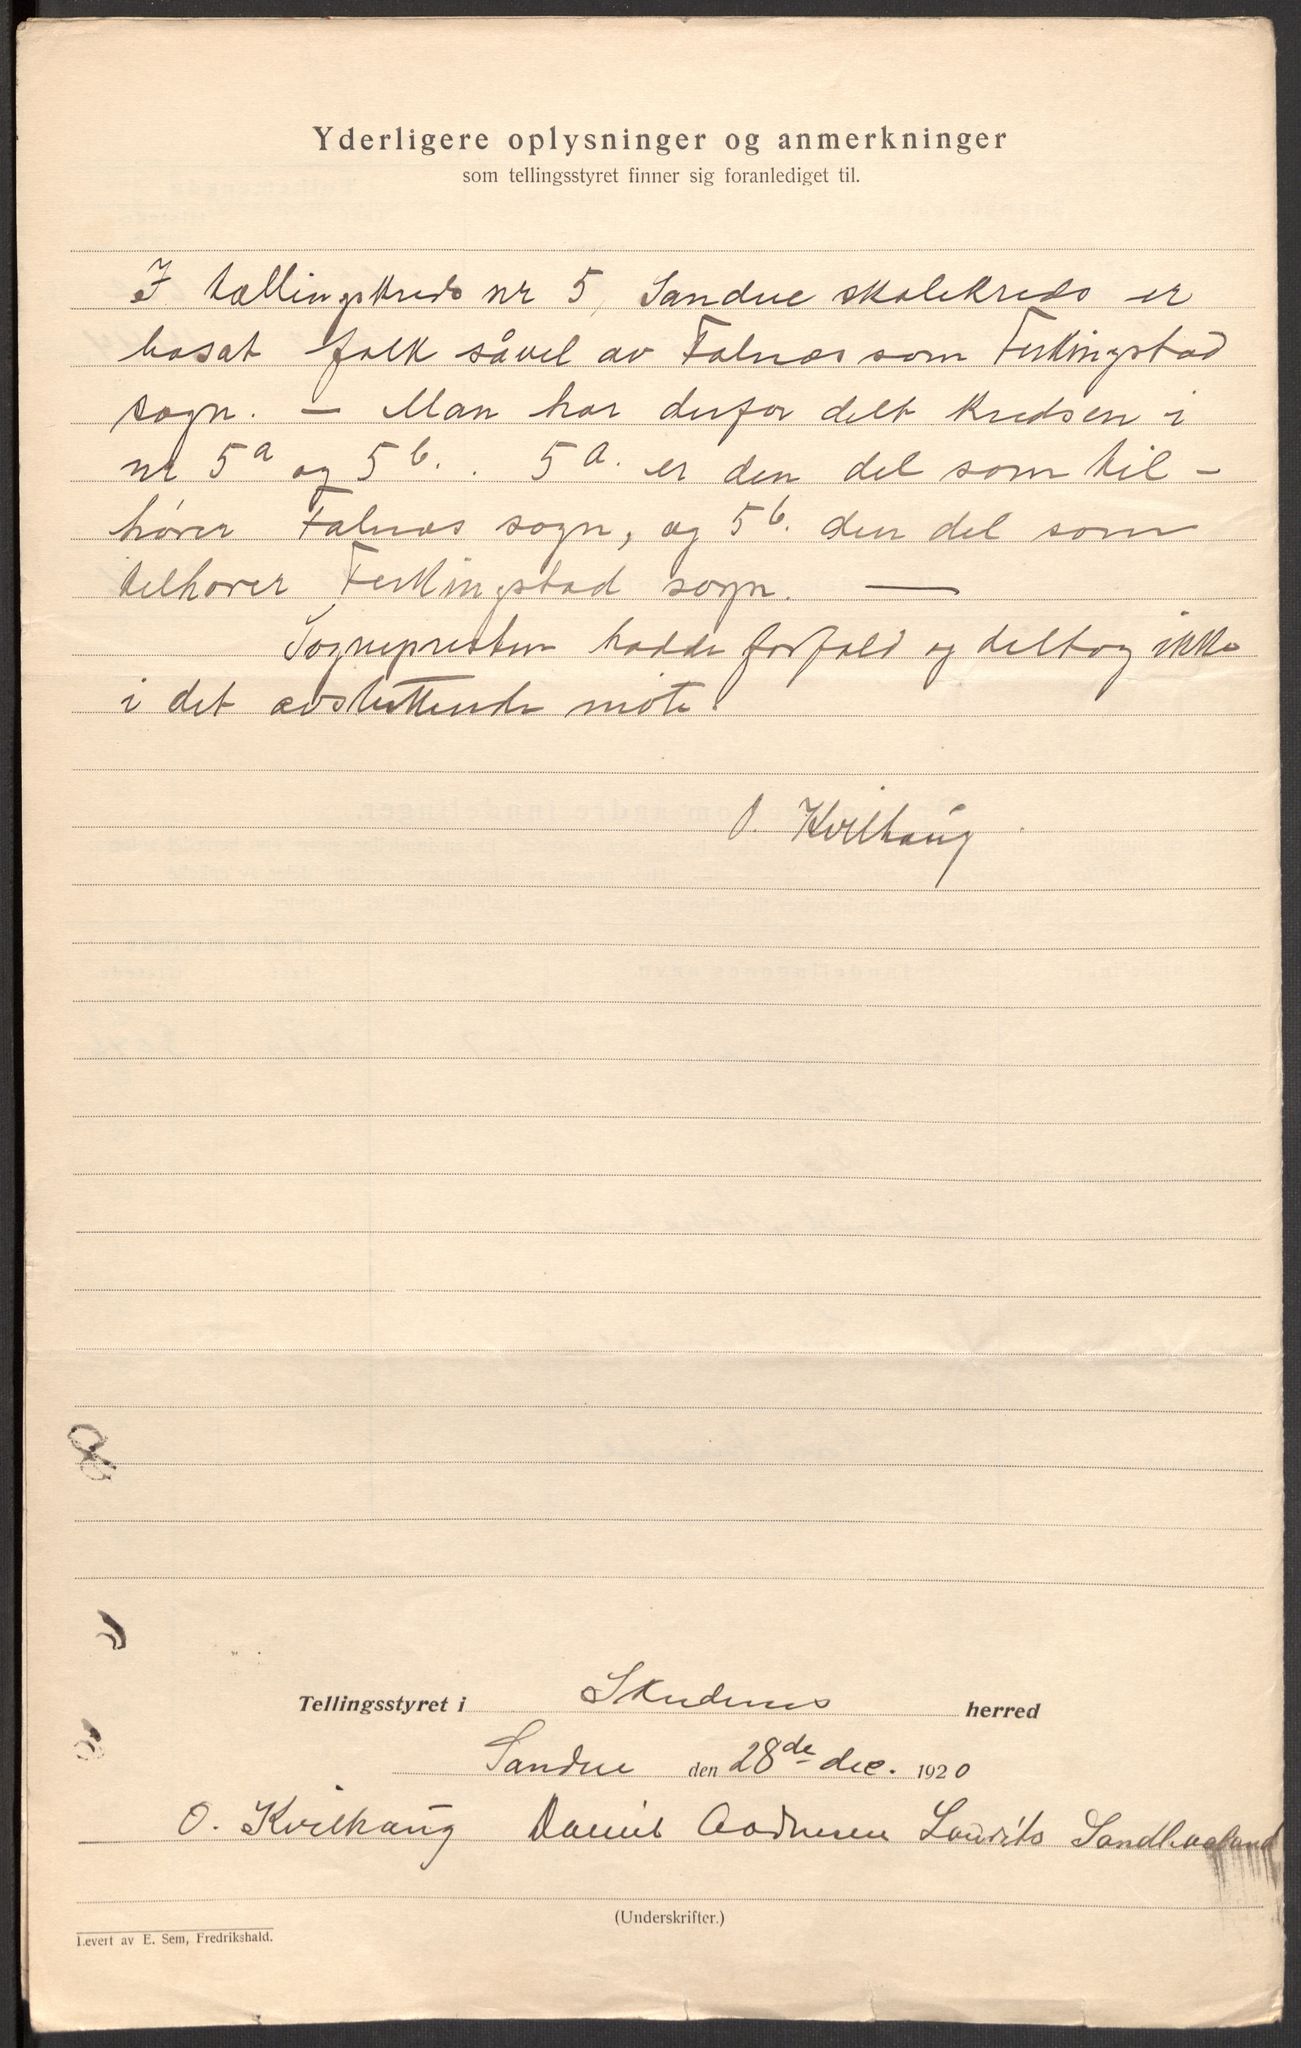 Yderligere oplysninger og anmerkninger
som tellingsstyret finner sig foranlediget til.
I tællingskreds nr 5, Sandve skolekreds er
bosat folk såvel av Falnæs som Ferkingstad
sogn. — Man har derfor delt kredsen i
nr 5a og 5b. . 5a. er den del som til-
hører Falnæs sogn, og 5b. den del som
tilhører Ferkingstad sogn. —
Sognepresten hadde forfald og deltog ikke
i det avsluttende møte.
O. Kvilhaug
Tellingsstyret i Skudenes herred
Sandve den 28de dec. 1920
O. Kvilhaug Daniel Aadnesen Laurits Sandhaaland
(Underskrifter.)
Levert av E. Sem, Fredrikshald.